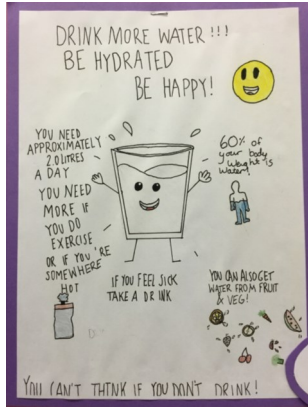 DRINK MORE WATER !!!
BE HYDRATED
BE HAPPY!
YOU NEED
APPROXIMATELY
2.0 LITRES
A DAY
YOU NEED
MORE IF
YOU DO
EXERCISE
OR IF YOU'RE
SOMEWHERE
HOT
60% of
your body
weight is
water!
IF YOU FEEL SICK
TAKE A DRINK
YOU CAN ALSO GET
WATER FROM FRUIT
& VEG!
YOU CAN'T THINK IF YOU DON'T DRINK!